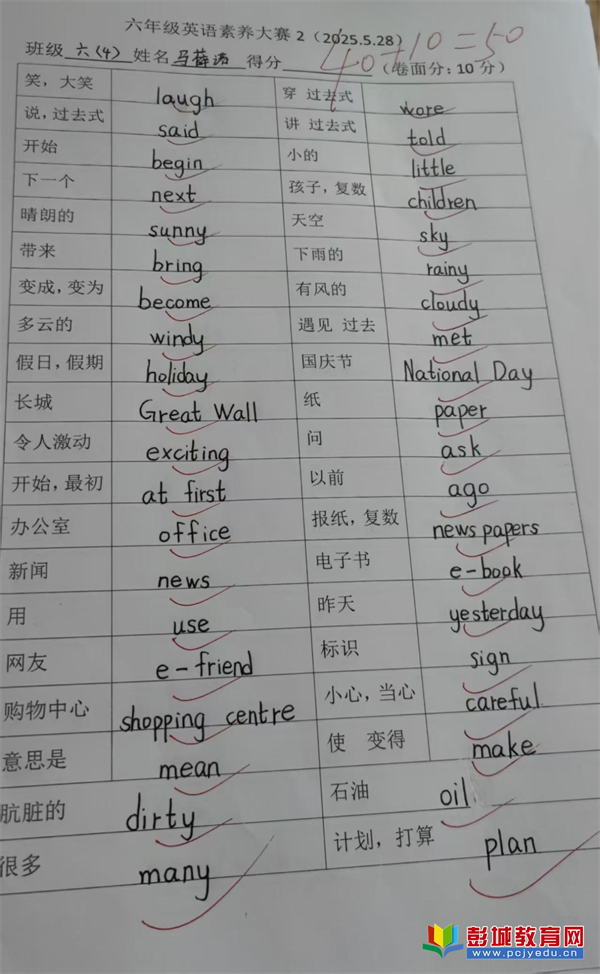 六年级英语素养大赛 2（2025.5.28）
40+10=50
班级 六(4) 姓名 马薛涛 得分 （卷面分：10 分）
笑，大笑 laugh 穿 过去式 wore
说，过去式 said 讲 过去式 told
开始 begin 小的 little
下一个 next 孩子，复数 children
晴朗的 sunny 天空 sky
带来 bring 下雨的 rainy
变成，变为 become 有风的 cloudy
多云的 windy 遇见 过去 met
假日，假期 holiday 国庆节 National Day
长城 Great Wall 纸 paper
令人激动 exciting 问 ask
开始，最初 at first 以前 ago
办公室 office 报纸，复数 newspapers
新闻 news 电子书 e-book
用 use 昨天 yesterday
网友 e-friend 标识 sign
购物中心 shopping centre 小心，当心 careful
意思是 mean 使 变得 make
肮脏的 dirty 石油 oil
很多 many 计划，打算 plan
彭城教育网
www.pcjyedu.cn